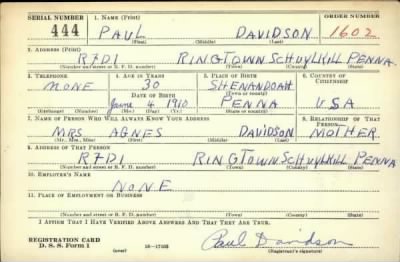 SERIAL NUMBER 1. NAME (Print) ORDER NUMBER
444 PAUL DAVIDSON 1602
(First) (Middle) (Last)
2. ADDRESS (Print)
RFD1 RINGTOWN SCHUYLKILL PENNA
(Number and street or R. F. D. number) (Town) (County) (State)
3. TELEPHONE 4. AGE IN YEARS 5. PLACE OF BIRTH 6. COUNTRY OF CITIZENSHIP
NONE 30 SHENANDOAH
DATE OF BIRTH (Town or county)
June 4 1910 PENNA USA
(Exchange) (Number) (Mo.) (Day) (Yr.) (State or country)
7. NAME OF PERSON WHO WILL ALWAYS KNOW YOUR ADDRESS 8. RELATIONSHIP OF THAT PERSON
MRS AGNES DAVIDSON MOTHER
(Mr., Mrs., Miss) (First) (Middle) (Last)
9. ADDRESS OF THAT PERSON
RFD1 RINGTOWN SCHUYLKILL PENNA
(Number and street or R. F. D. number) (Town) (County) (State)
10. EMPLOYER'S NAME
NONE
11. PLACE OF EMPLOYMENT OR BUSINESS
(Number and street or R. F. D. number) (Town) (County) (State)
I AFFIRM THAT I HAVE VERIFIED ABOVE ANSWERS AND THAT THEY ARE TRUE.
REGISTRATION CARD Paul Davidson
D. S. S. Form 1 (over) 16—17105 (Registrant's signature)